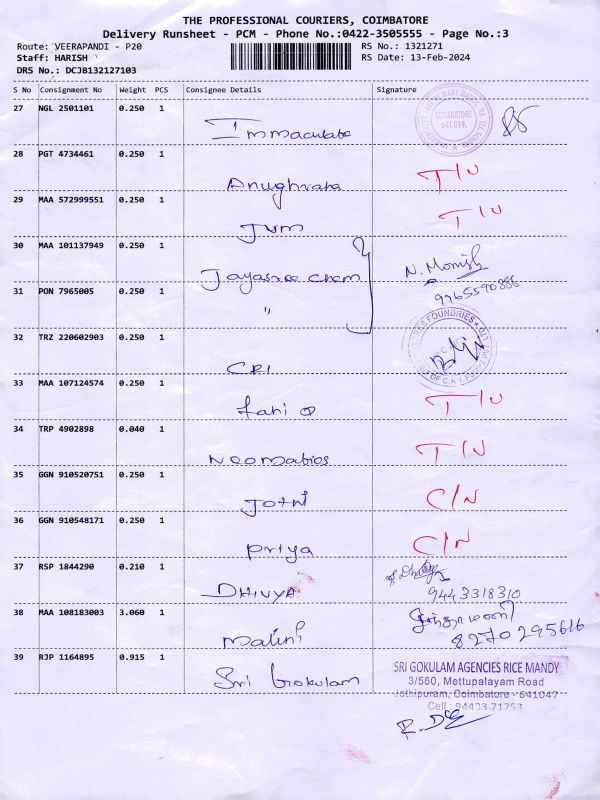 THE PROFESSIONAL COURIERS, COIMBATORE
Delivery Runsheet - PCM - Phone No.:0422-3505555 - Page No.:3
Route: VEERAPANDI - P20
RS No.: 1321271
Staff: HARISH
RS Date: 13-Feb-2024
DRS No.: DCJB132127103
S No Consignment No Weight PCS Consignee Details Signature
27 NGL 2501101 0.250 1
COIMBATORE
641 019.
Immaculate
28 PGT 4734461 0.250 1
Anughraha T/U
29 MAA 572999551 0.250 1
JVM T/U
30 MAA 101137949 0.250 1
Jayasree chem N. Monish
31 PON 7965005 0.250 1 9965590886
"
32 TRZ 220602903 0.250 1
FOUNDRIES
CRI
33 MAA 107124574 0.250 1
T/U
34 TRP 4902898 0.040 1
Neomatios T/U
35 GGN 910520751 0.250 1
Jothi C/N
36 GGN 910548171 0.250 1
Priya C/N
37 RSP 1844290 0.210 1
DHIVYA 9443318310
38 MAA 108183003 3.060 1
Malini 8270295616
39 RJP 1164895 0.915 1
Sri Gokulam
SRI GOKULAM AGENCIES RICE MANDY
3/560, Mettupalayam Road
Jothipuram, Coimbatore - 641047
Cell : 94433 71753